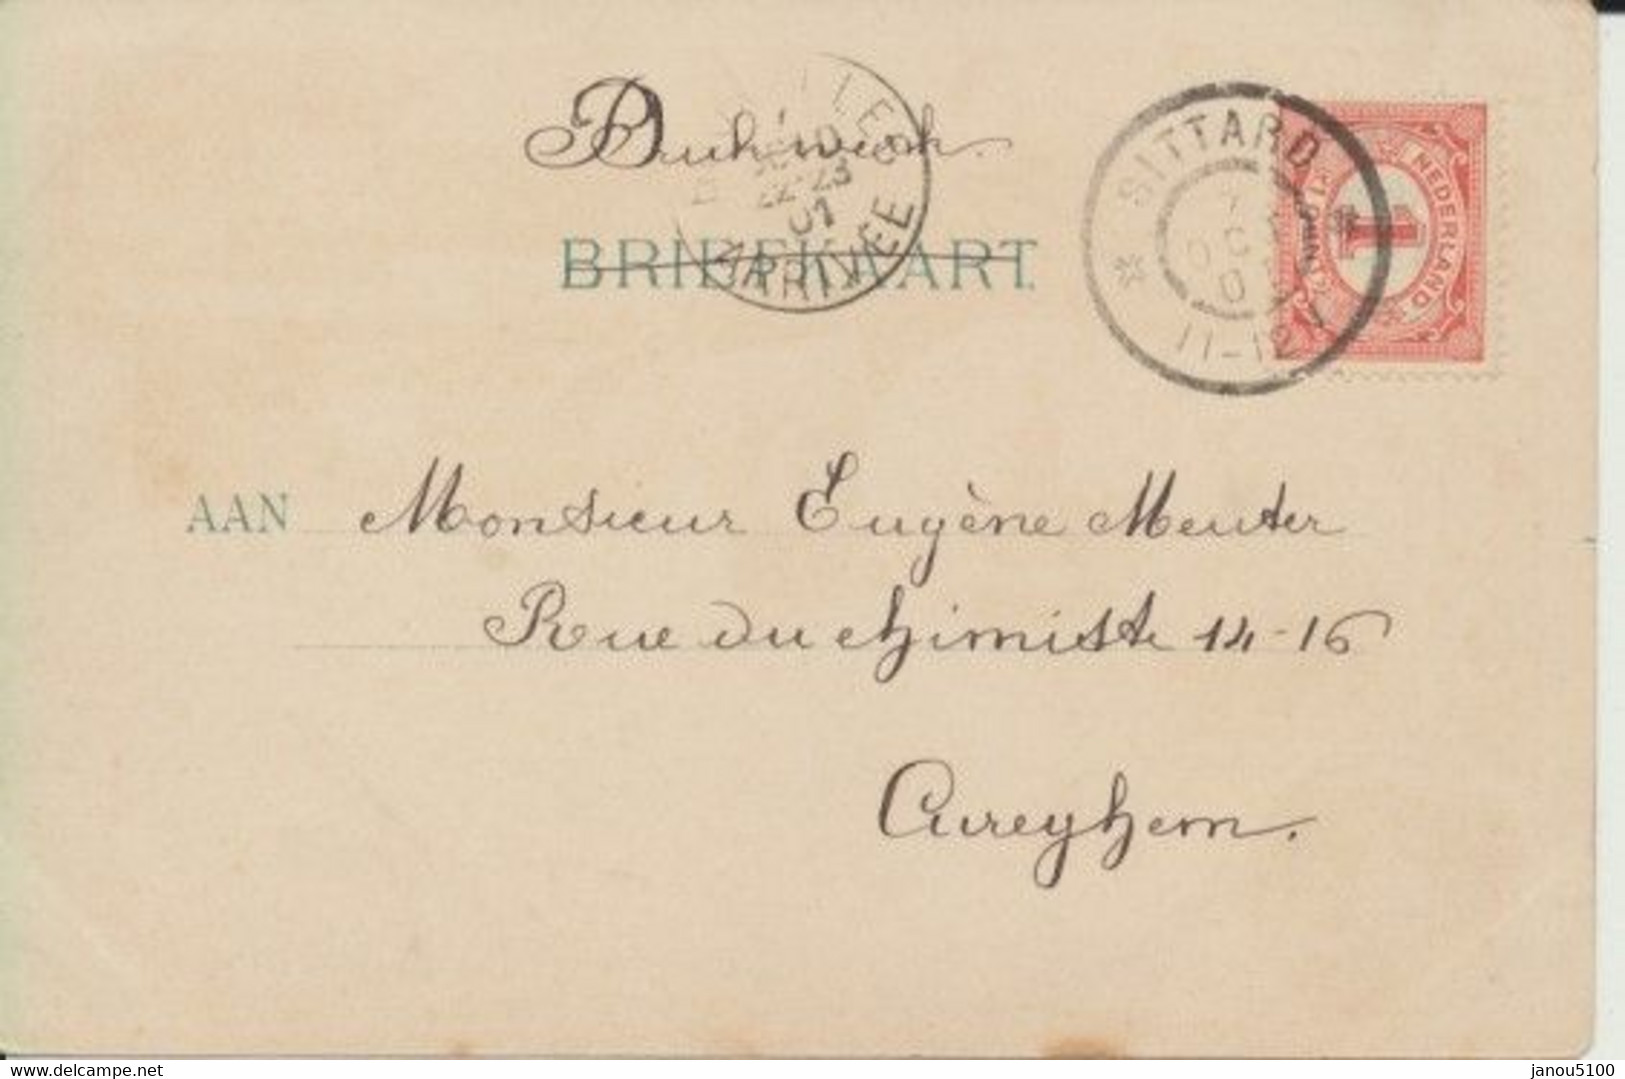 Drukwerk.
BRIEFKAART
ARRIVÉE
22-23
01
SITTARD
11-12
NEDERLAND
1
AAN Monsieur Eugène Meuter
Rue du chimiste 14-16
Cureghem.
delcampe.net
janou5100